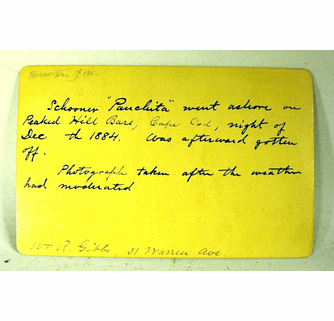 Schooner "Panchita" went ashore on
Peaked Hill Bars, Cape Cod, night of
Dec th 1884. Was afterward gotten
off.
Photograph taken after the weather
had moderated
Wm R. Gibbs, 31 Warren Ave.